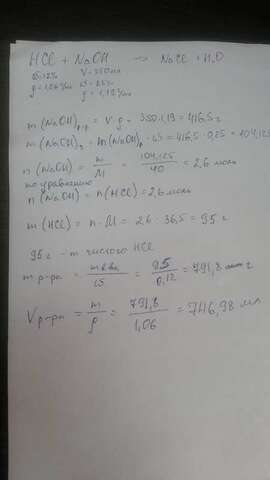 HCl + NaOH → NaCl + H₂O
ω=12% V=350 мл
ρ=1,06 г/мл ω=25%
ρ=1,19 г/мл
m (NaOH)р-р = V·ρ = 350·1,19 = 416,5 г
m (NaOH)ч = m(NaOH)р · ω = 416,5 · 0,25 = 104,125
n (NaOH) = m/M = 104,125/40 = 2,6 моль
по уравнению
n (NaOH) = n (HCl) = 2,6 моль
m (HCl) = n · M = 2,6 · 36,5 = 95 г
95 г - m чистого HCl
m р-ра = m в-ва/ω = 95/0,12 = 791,8 г
V р-ра = m/ρ = 791,8/1,06 = 746,98 мл